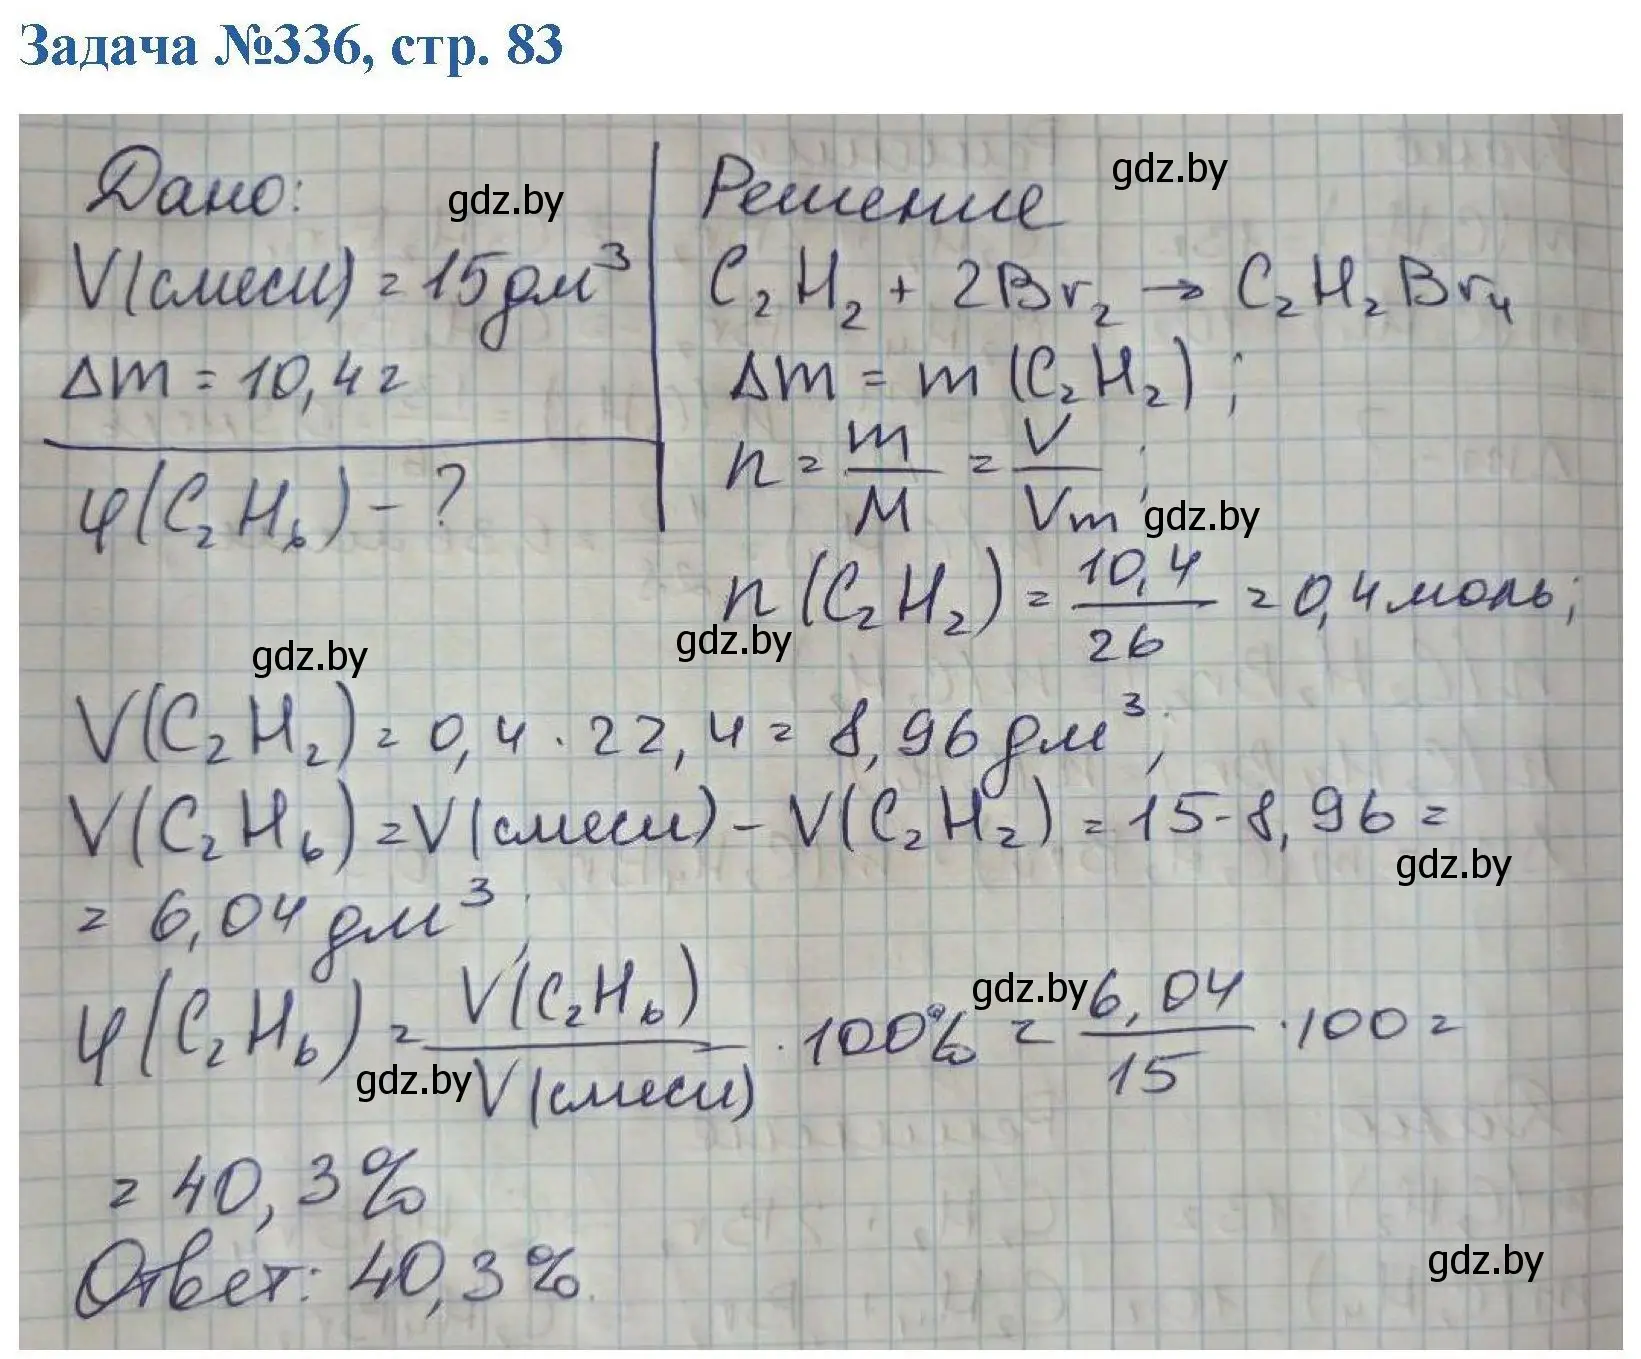 Задача №336, стр. 83
Дано:
V(смеси) = 15 дм³
Δm = 10,4 г
φ(C₂H₆) - ?
Решение
C₂H₂ + 2Br₂ → C₂H₂Br₄
Δm = m (C₂H₂);
n = m/M = V/Vm;
n (C₂H₂) = 10,4/26 = 0,4 моль;
V(C₂H₂) = 0,4 · 22,4 = 8,96 дм³;
V(C₂H₆) = V(смеси) - V(C₂H₂) = 15 - 8,96 =
= 6,04 дм³;
φ(C₂H₆) = V(C₂H₆)/V(смеси) · 100% = 6,04/15 · 100 =
= 40,3%
Ответ: 40,3%.
gdz.by
gdz.by
gdz.by
gdz.by
gdz.by
gdz.by
gdz.by
gdz.by
gdz.by